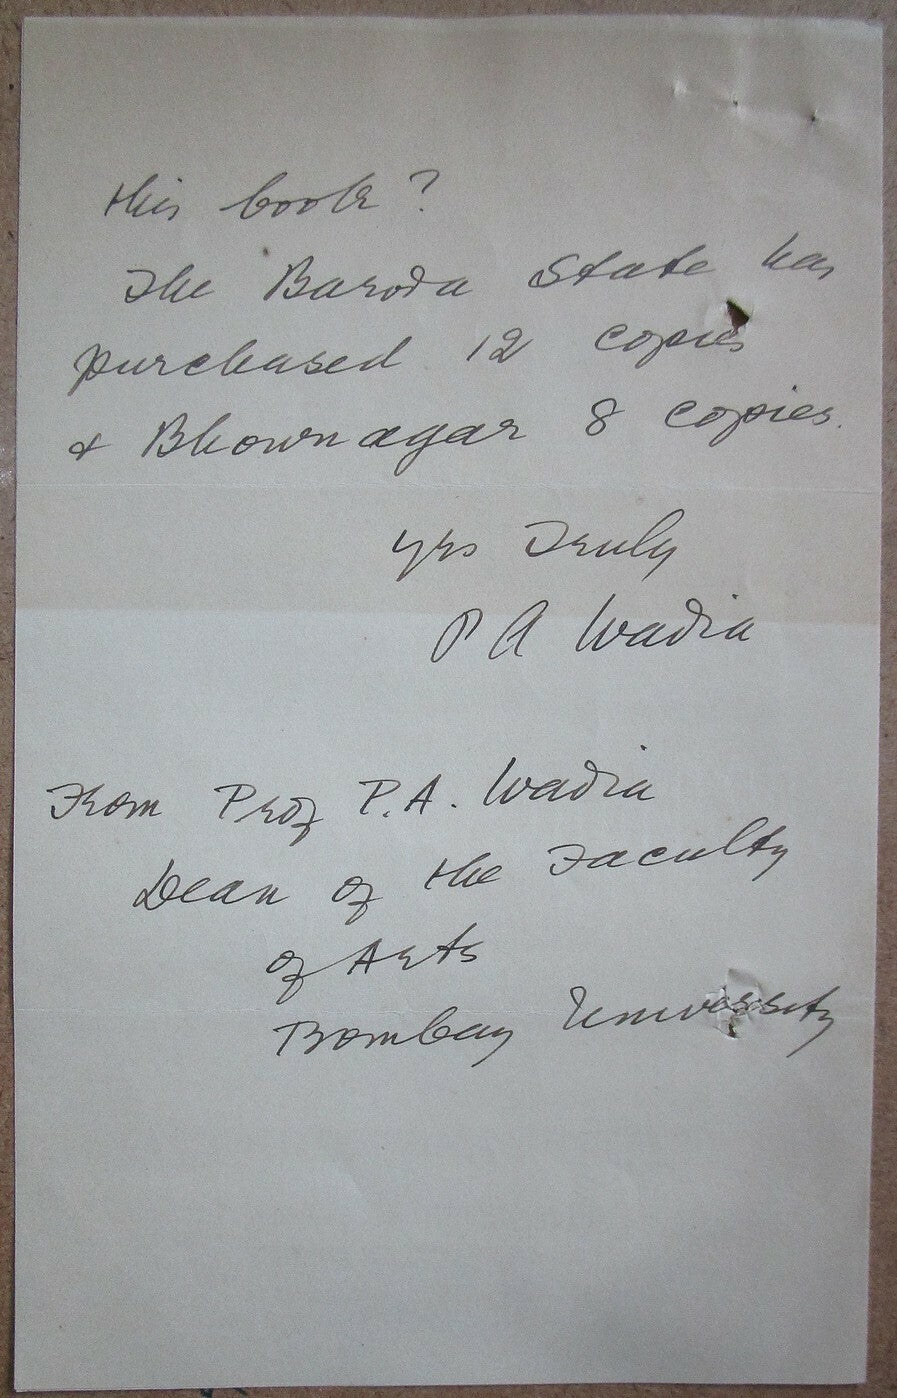 this book?
The Baroda State has
purchased 12 copies
& Bhownagar 8 copies.
yrs Truly
P A Wadia
From Prof P.A. Wadia
Dean of the Faculty
of Arts
Bombay University